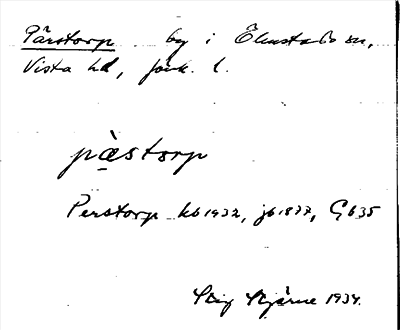 Pärstorp by i Ölmstads sn,
Vista hd, Jönk. l.
pæ̀storp
Perstorp kb 1932, jb 1877, Gb 35
Stig Bjärme 1934.